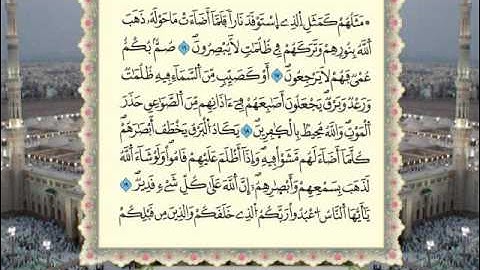 ۞ مَثَلُهُمْ كَمَثَلِ الَّذِي اِسْتَوْقَدَ نَاراً فَلَمَّا أَضَاءَتْ مَا حَوْلَهُ ذَهَبَ
اللَّهُ بِنُورِهِمْ وَتَرَكَهُمْ فِي ظُلُمَاتٍ لَّا يُبْصِرُونَ ۝ صُمٌّ بُكْمٌ
عُمْيٌ فَهُمْ لَا يَرْجِعُونَ ۝ أَوْ كَصَيِّبٍ مِّنَ السَّمَاءِ فِيهِ ظُلُمَاتٌ
وَرَعْدٌ وَبَرْقٌ يَجْعَلُونَ أَصَابِعَهُمْ فِي ءَاذَانِهِم مِّنَ الصَّوَاعِقِ حَذَرَ
الْمَوْتِ وَاللَّهُ مُحِيطٌ بِالْكَافِرِينَ ۝ يَكَادُ الْبَرْقُ يَخْطَفُ أَبْصَارَهُمْ
كُلَّمَا أَضَاءَ لَهُم مَّشَوْا فِيهِ وَإِذَا أَظْلَمَ عَلَيْهِمْ قَامُوا وَلَوْ شَاءَ اللَّهُ
لَذَهَبَ بِسَمْعِهِمْ وَأَبْصَارِهِمْ إِنَّ اللَّهَ عَلَىٰ كُلِّ شَيْءٍ قَدِيرٌ ۝
يَا أَيُّهَا النَّاسُ اعْبُدُوا رَبَّكُمُ الَّذِي خَلَقَكُمْ وَالَّذِينَ مِن قَبْلِكُمْ